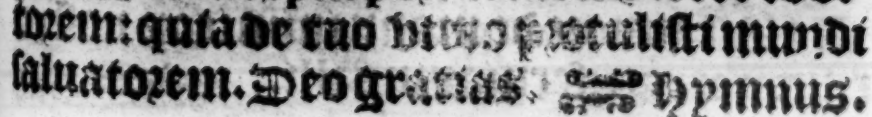 torem: quia de tuo utero protulisti mundi
saluatorem. Deo gratias. Hymnus.